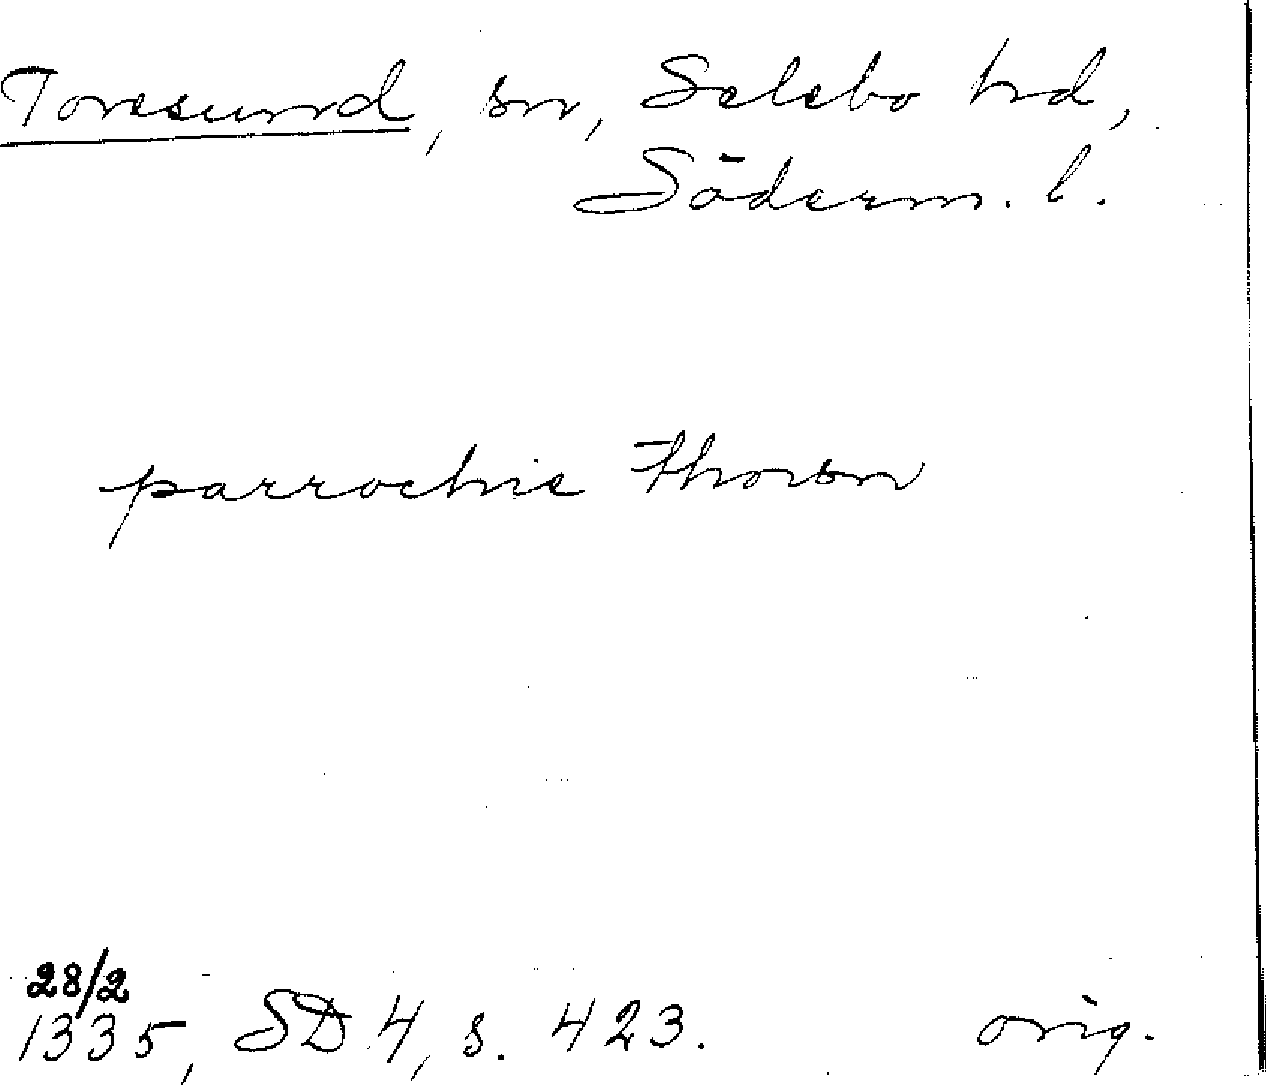 Toresund, sn, Selebo hd,
Söderm. l.
parrochie thorsn
28/2
1335, SD 4, s. 423. orig.